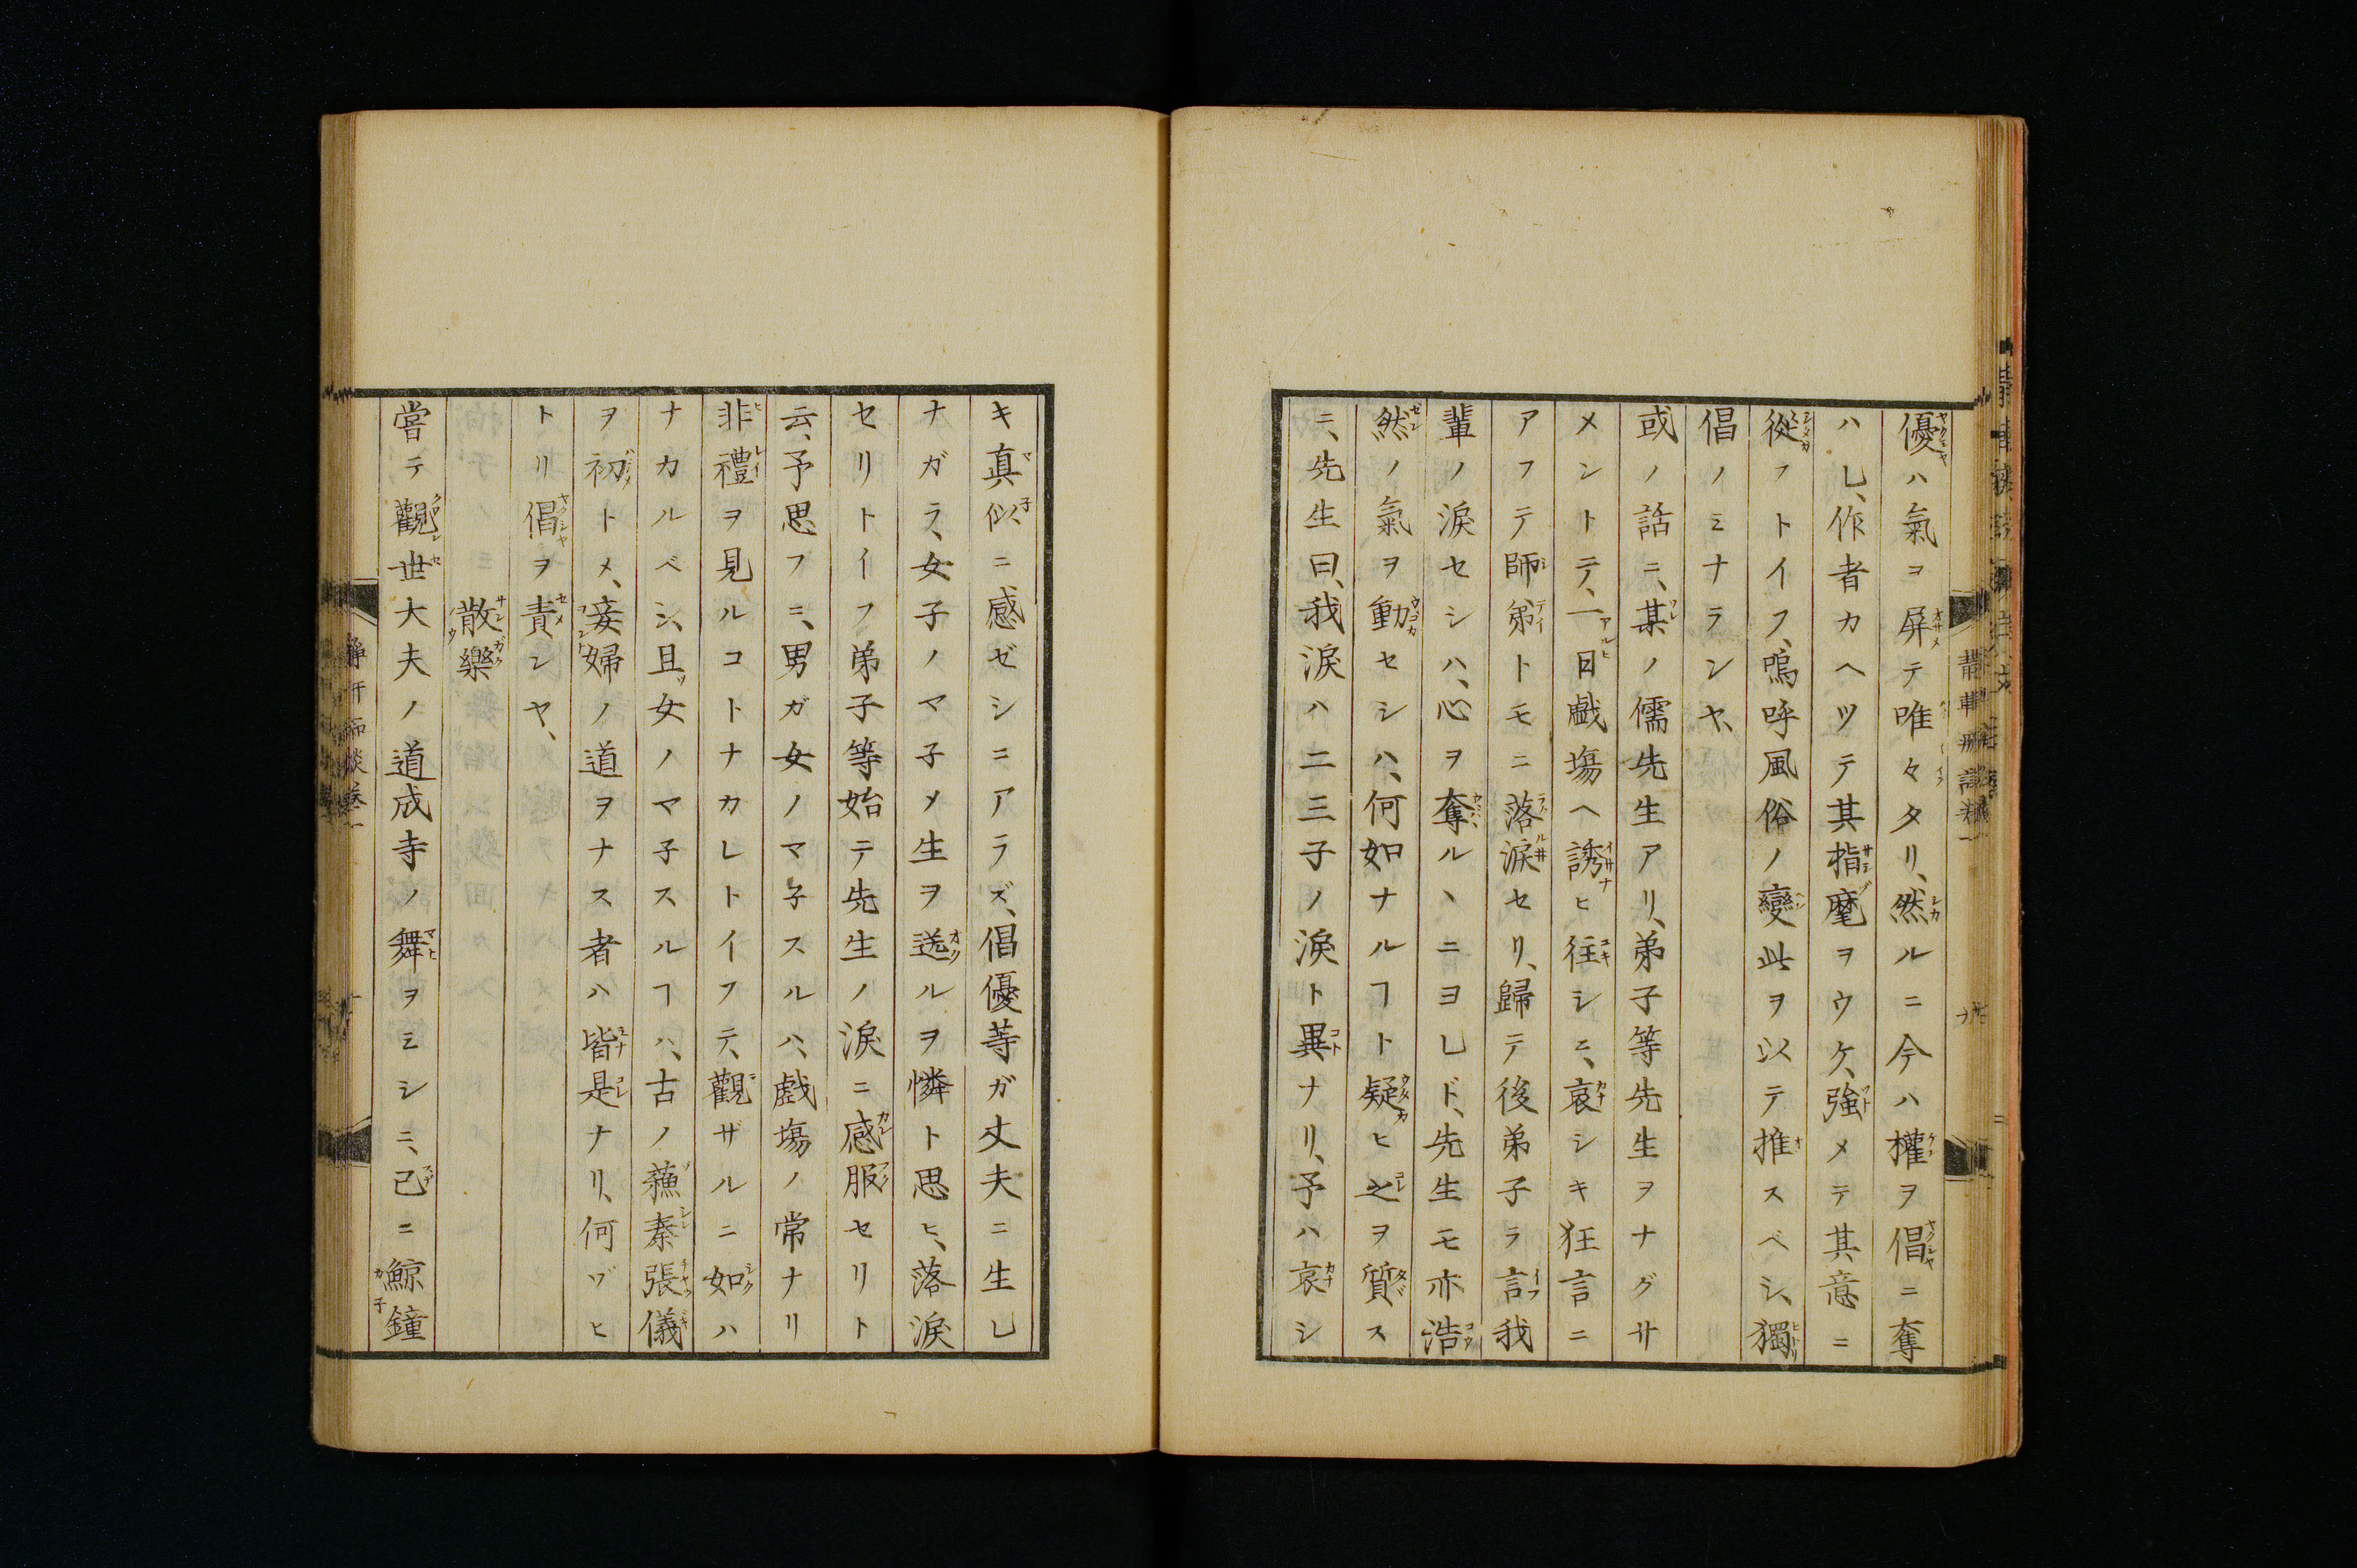 優ハ氣ヲ屏テ唯々タリ、然ルニ今ハ權ヲ倡ニ奪
ハレ、作者カヘツテ其指麾ヲウケ、強メテ其意ニ
從フトイフ、嗚呼風俗ノ變此ヲ以テ推スベシ、獨
倡ノミナランヤ、
或ノ話ニ、某ノ儒先生アリ、弟子等先生ヲナグサ
メントテ、一日戯場ヘ誘ヒ往シニ、哀シキ狂言ニ
アフテ師弟トモニ落涙セリ、歸テ後弟子ラ言我
輩ノ涙セシハ、心ヲ奪ルヽニヨレド、先生モ亦浩
然ノ氣ヲ動セシハ、何如ナルヿト疑ヒ之ヲ質ス
ニ、先生曰、我涙ハ二三子ノ涙ト異ナリ、予ハ哀シ
キ真似ニ感ゼシニアラズ、倡優等ガ丈夫ニ生レ
ナガラ、女子ノマ子メ生ヲ送ルヲ憐ト思ヒ、落涙
セリトイフ弟子等始テ先生ノ涙ニ感服セリト
云、予思フニ、男ガ女ノマ子スルハ、戯場ノ常ナリ
非禮ヲ見ルコトナカレトイフテ、觀ザルニ如ハ
ナカルベシ、且女ノマ子スルヿハ、古ノ蘓秦張儀
ヲ初トメ、妾婦ノ道ヲナス者ハ皆是ナリ、何ゾヒ
トリ倡ヲ責ンヤ、
散樂
嘗テ觀世大夫ノ道成寺ノ舞ヲミシニ、已ニ鯨鐘